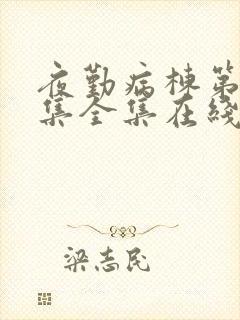 夜勤病棟第
集全集在线
梁志民